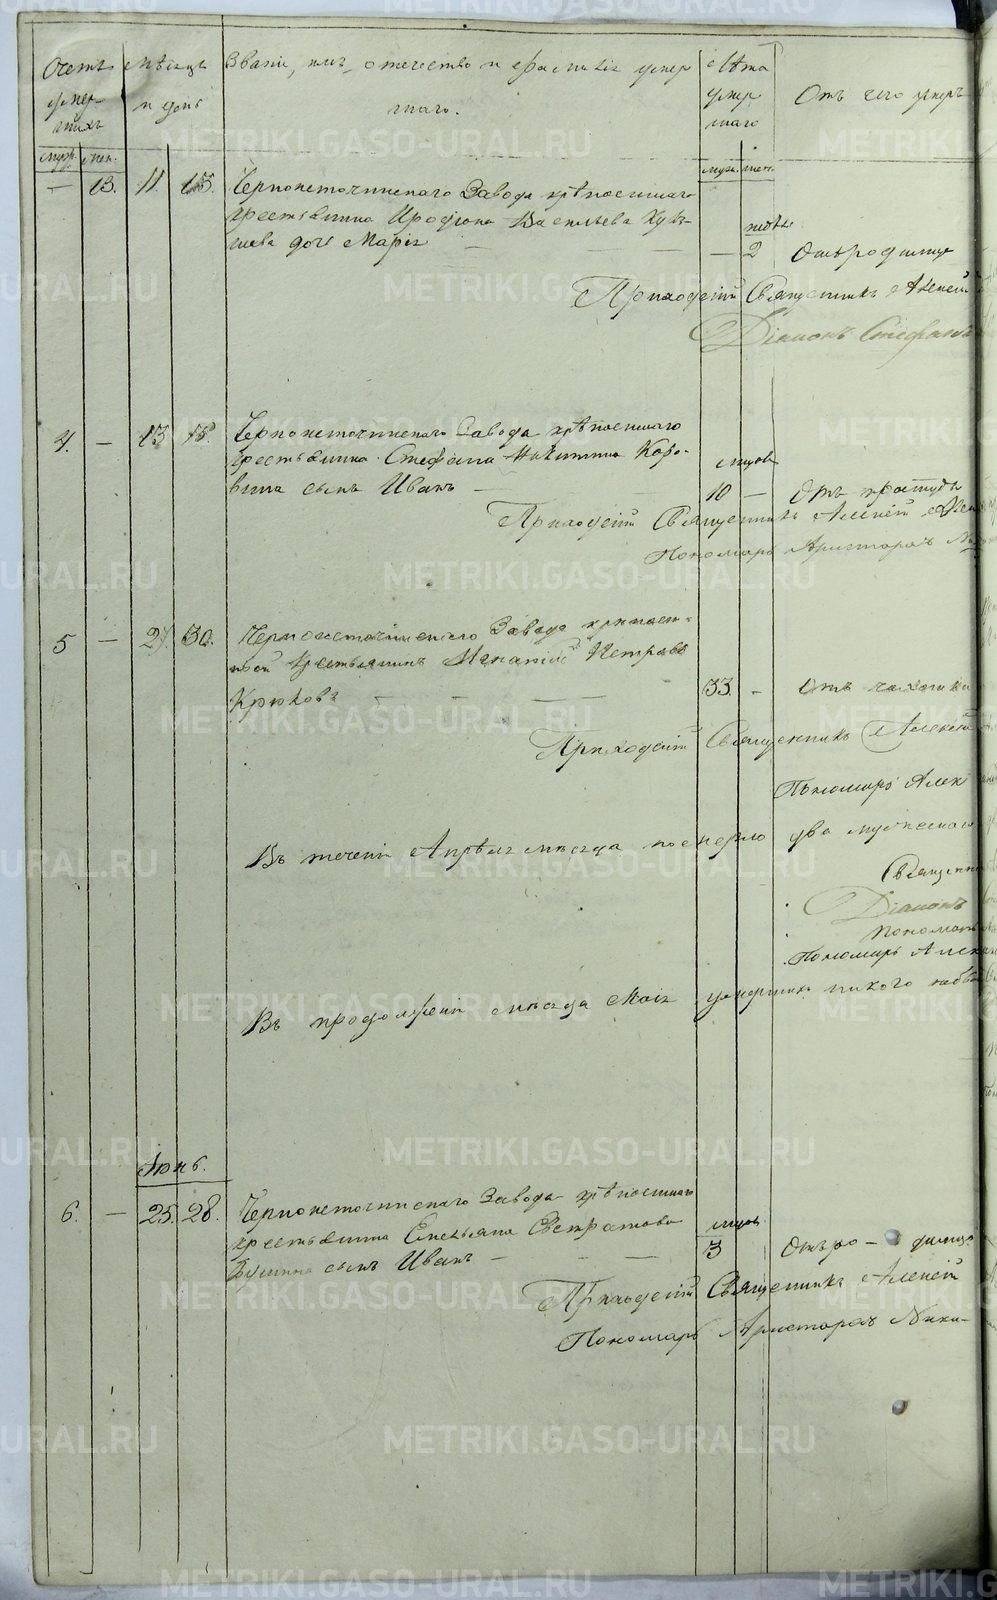 Счетъ умер-
шихъ
Мѣсяцъ
и день
Званіе, имя, отечество и фамилія умер
шаго.
Лѣта
умер
шаго
Отъ чего умеръ
муж. жен.
муж. жен.
— 13. 11. 15. Чернонсточинскаго Завода крѣпостнаго
крестьянина Иродіона Васильева
дочь Марія — 2 Отъ родимца
Приходскій Священникъ Алексій
Діаконъ Стефанъ
4. — 13 15. Черноисточинскаго Завода крѣпостнаго
крестьянина Стефана Никитина Каро-
вина сынъ Иванъ — 10 — Отъ простуды
Приходскій Священникъ Алексій
Пономарь Аристархъ
5 — 27 30. Черноисточинскаго Завода крѣпост-
ной крестьянинъ Игнатій Петровъ
Крюковъ — — — 33. — Отъ чахотки
Приходскій Священникъ Алексій
Пономарь Алек
Въ теченіи Апрѣля мѣсяца померло два мужескаго
Священни
Діаконъ
Пономарь
Пономарь Алек
Въ продолженіи мѣсяца Маія умершихъ никого небы
Іюнь.
6. — 25. 28. Черноисточинскаго Завода крѣпостнаго
крестьянина Емельяна
сынъ Иванъ — — — 3 Отъ ро — димца
Приходскій Священникъ Алексій
Пономарь Аристархъ Ники-
METRIKI.GASO-URAL.RU